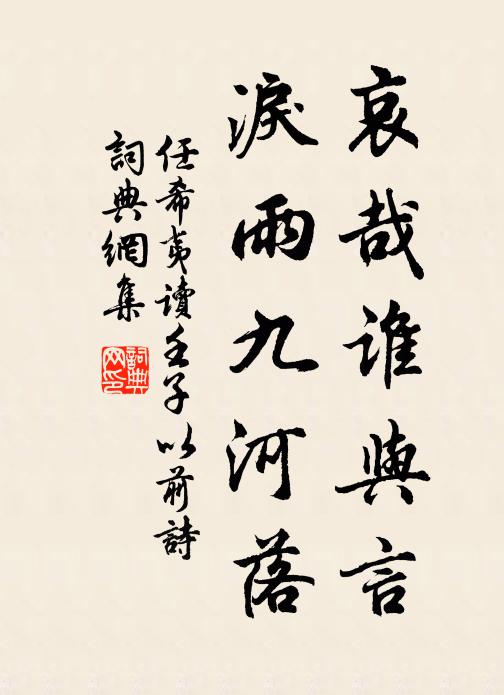 哀哉誰與言
淚雨九河落
任希夷讀壬子以前詩
詞典網集
詞典网印